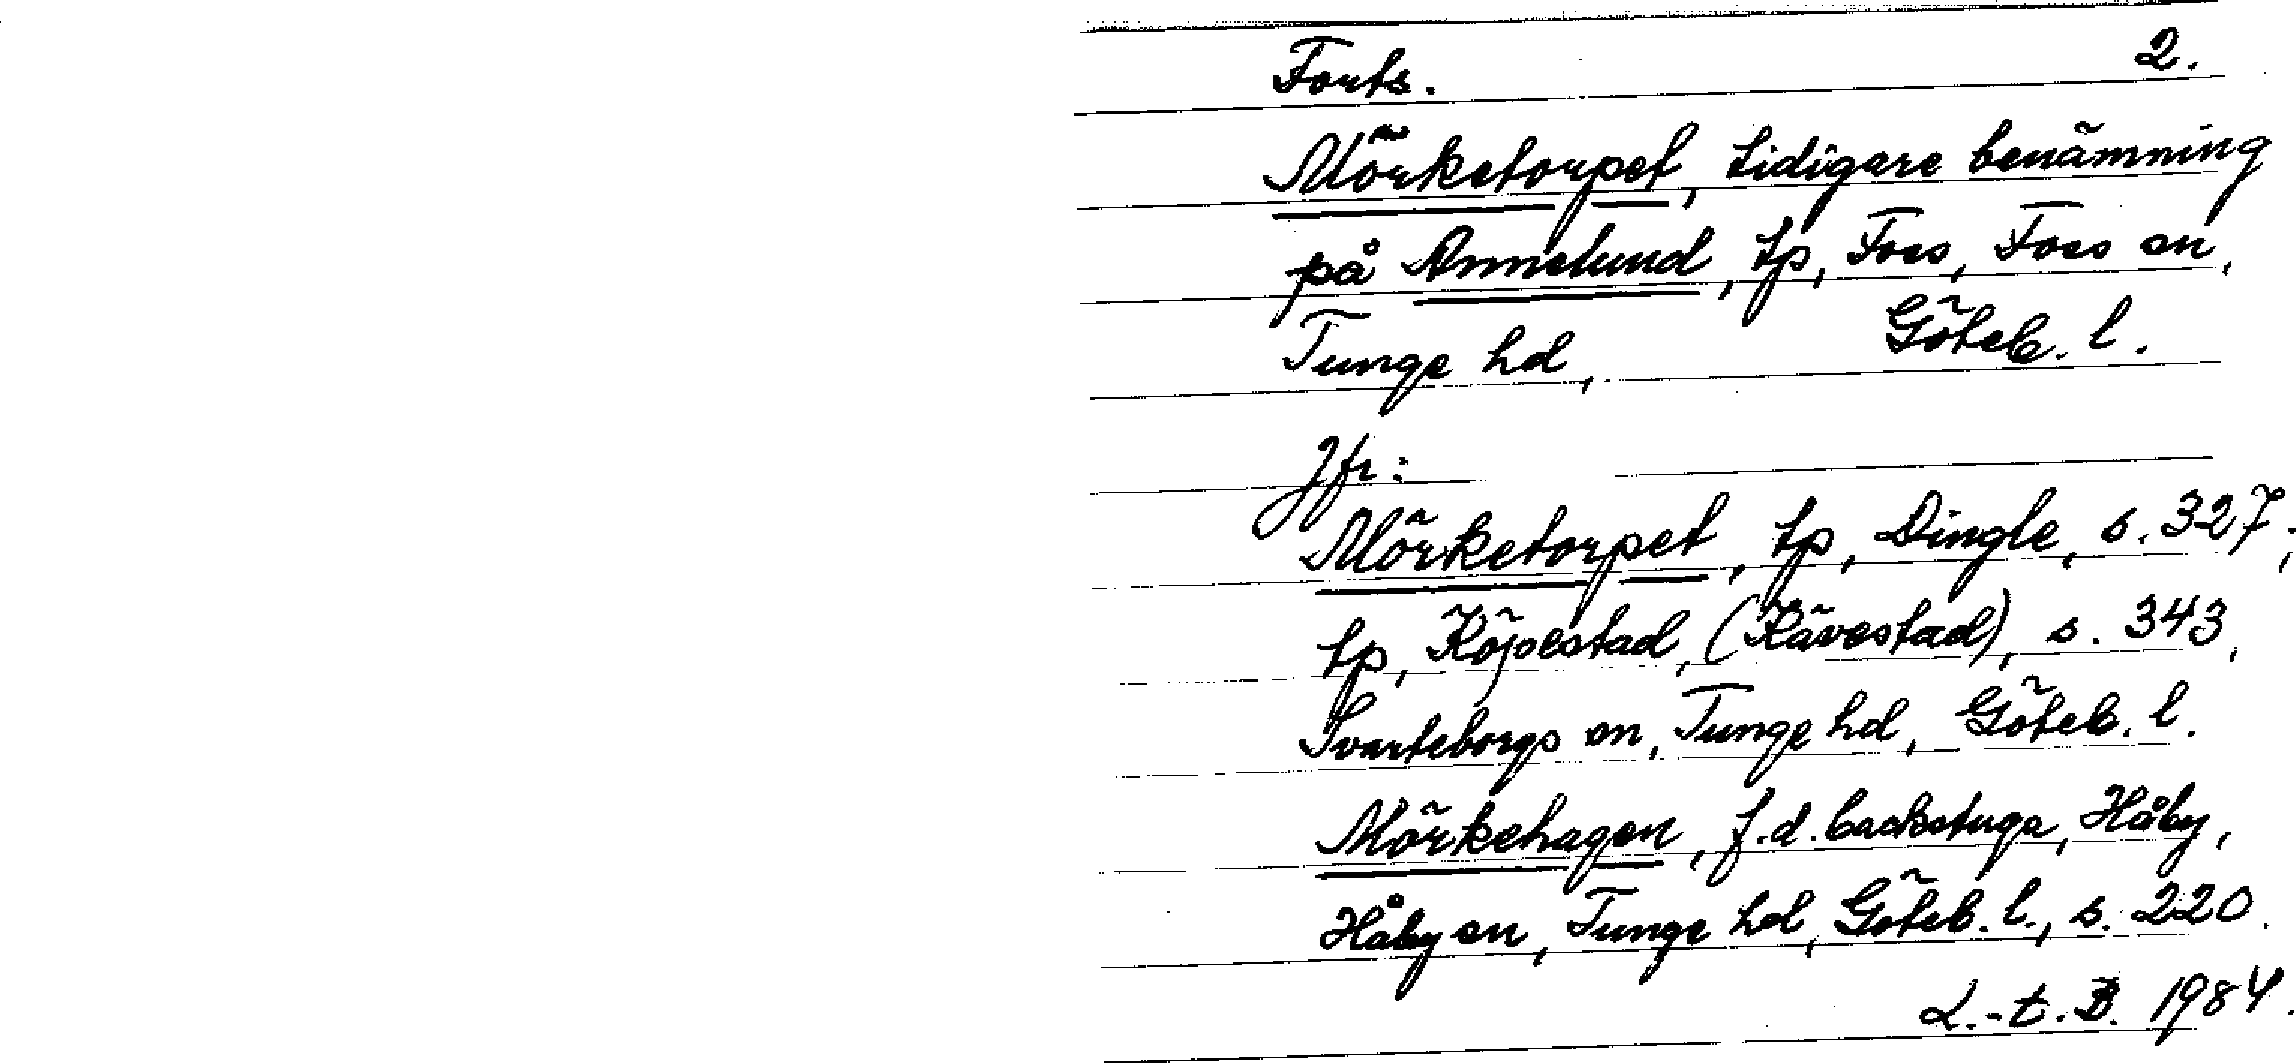 Forts. 2.
Mörketorpet, tidigare benämning
på Annelund, tp, Foss, Foss sn,
Tunge hd, Göteb. l.
Jfr:
Mörketorpet, tp, Dingle, s. 327;
tp, Köpestad, (Kävestad), s. 343,
Svarteborgs sn, Tunge hd, Göteb. l.
Mörkehagen, f.d. backstuga, Håby,
Håby sn, Tunge hd, Göteb. l., s. 220.
L.-t. B. 1984.